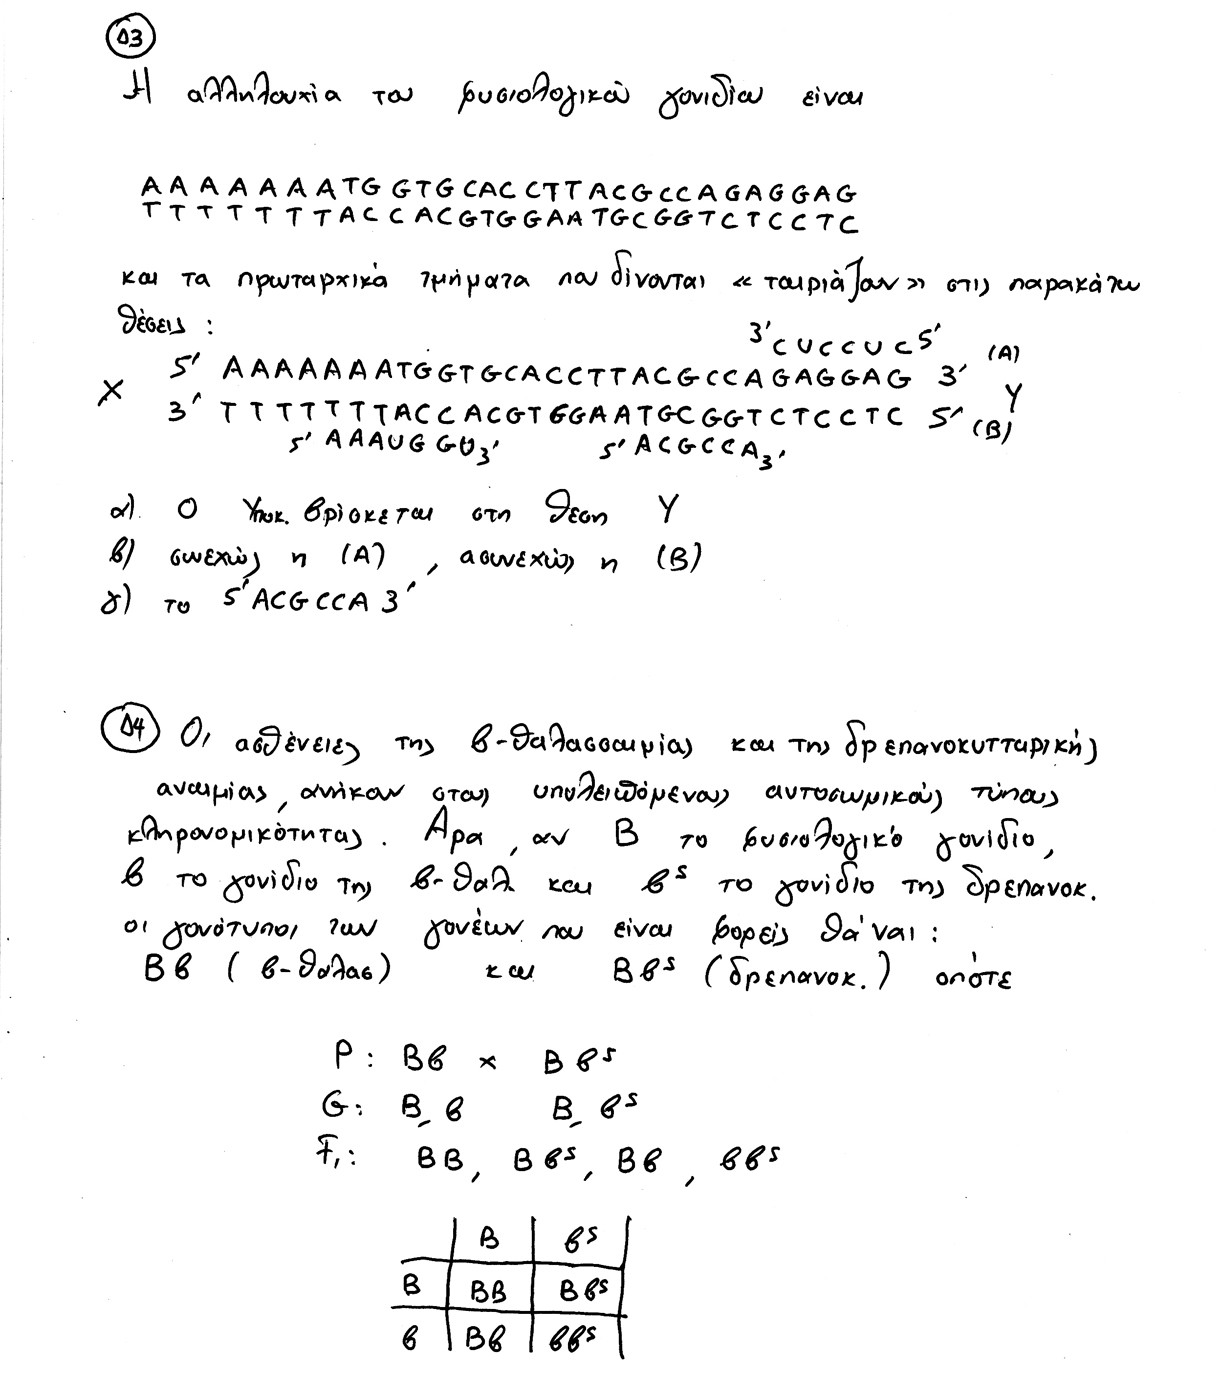 Δ3
Η αλληλουχία του φυσιολογικού γονιδίου είναι
A A A A A A A T G G T G C A C C T T A C G C C A G A G G A G
T T T T T T T A C C A C G T G G A A T G C G G T C T C C T C
και τα πρωταρχικά τμήματα που δίνονται « ταιριάζουν » στις παρακάτω
θέσεις :
3' C U C C U C 5' (A)
5' A A A A A A A T G G T G C A C C T T A C G C C A G A G G A G 3'
X Y
3' T T T T T T T A C C A C G T G G A A T G C G G T C T C C T C 5' (B)
5' A A A U G G U 3' 5' A C G C C A 3'
α) Ο Υποκ. βρίσκεται στη θέση Y
β) συνεχώς η (A) , ασυνεχώς η (B)
γ) το 5' ACGCCA 3'
Δ4 Οι ασθένειες της β-θαλασσαιμίας και της δρεπανοκυτταρικής
αναιμίας, ανήκουν στους υπολειπόμενους αυτοσωμικούς τύπους
κληρονομικότητας. Άρα, αν Β το φυσιολογικό γονίδιο,
β το γονίδιο της β-θαλ και βˢ το γονίδιο της δρεπανοκ.
οι γονότυποι των γονέων που είναι φορείς θα 'ναι :
Ββ ( β-θαλασ) και Ββˢ (δρεπανοκ.) οπότε
P : Ββ × Ββˢ
G : Β, β Β, βˢ
F₁ : ΒΒ, Ββˢ, Ββ, ββˢ
Β βˢ
Β ΒΒ Ββˢ
β Ββ ββˢ